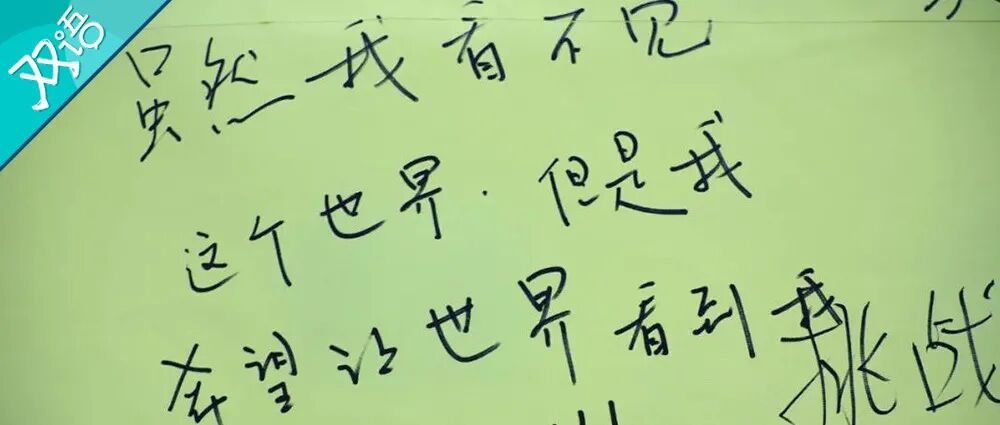 双语
虽然我看不见
这个世界.但是我
希望让世界看到我
挑战